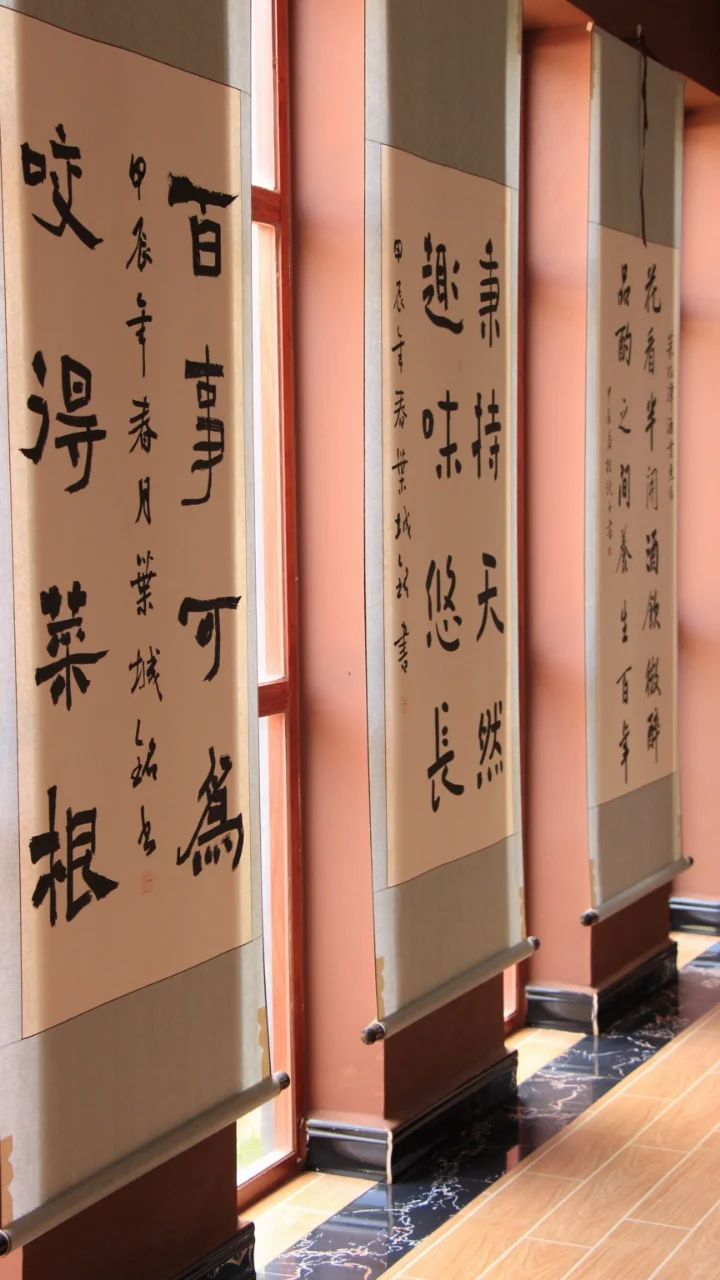 百事可爲
甲辰年春月葉城銘书
咬得菜根
秉持天然
趣味悠長
甲辰年春葉城銘書
花看半開酒飲微醉
品酌之間養生百年